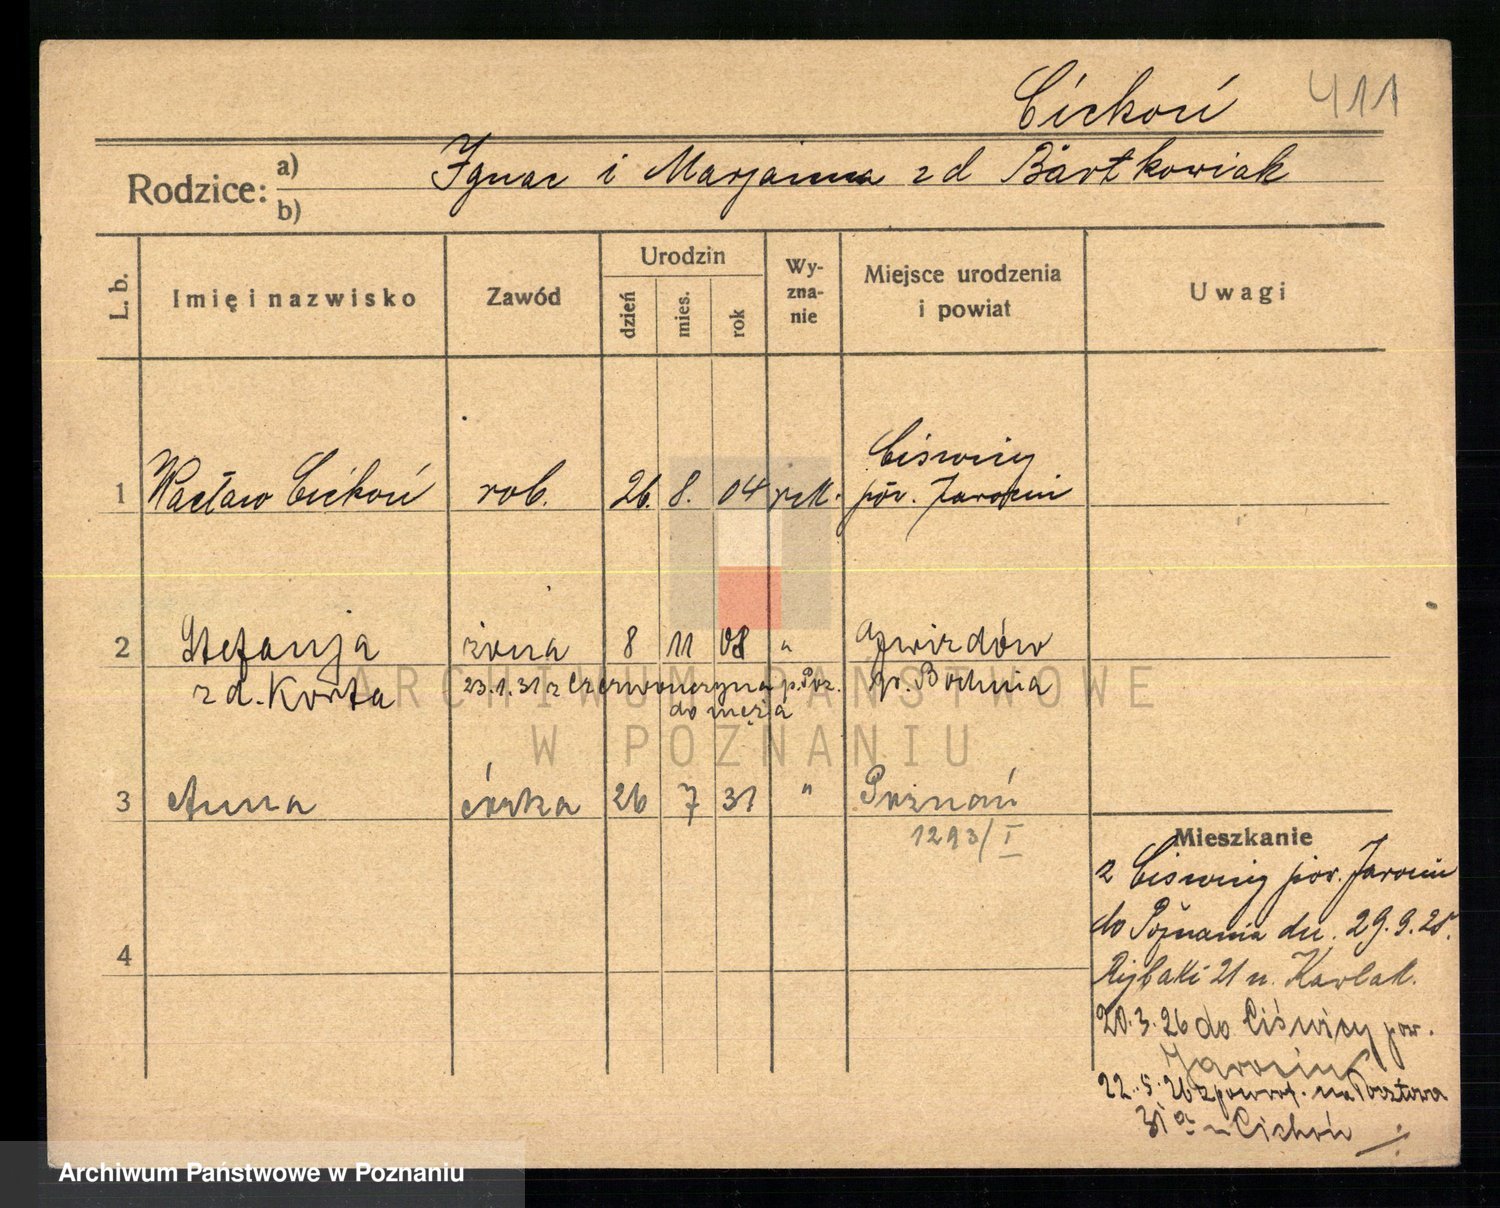 Cichoń 411
Rodzice: a) b) Ignac i Marjanna z d Bartkowiak
L. b.
Imię i nazwisko
Zawód
Urodzin
dzień
mies.
rok
Wy-
zna-
nie
Miejsce urodzenia
i powiat
Uwagi
1 Wacław Cichoń rob. 26. 8. 04 rzk. Ciświcy
pow. Jarocin
2 Stefanja żona 8 11 08 " Gwizdów
z d. Korta 23.1.31 z Czerwonczyna p. Poz. p. Bochnia
do męża
3 Anna córka 26 7 31 " Poznań
1293/I
4
Mieszkanie
z Ciświcy pow. Jarocin
do Poznania dn. 29.9.25.
Rybaki 21 u. Kawlak.
20.3.26 do Ciświcy pow.
Jarocin
22.5.26 z powrot. na Pocztowa
31a u Cichoń
ARCHIWUM PAŃSTWOWE
W POZNANIU
Archiwum Państwowe w Poznaniu